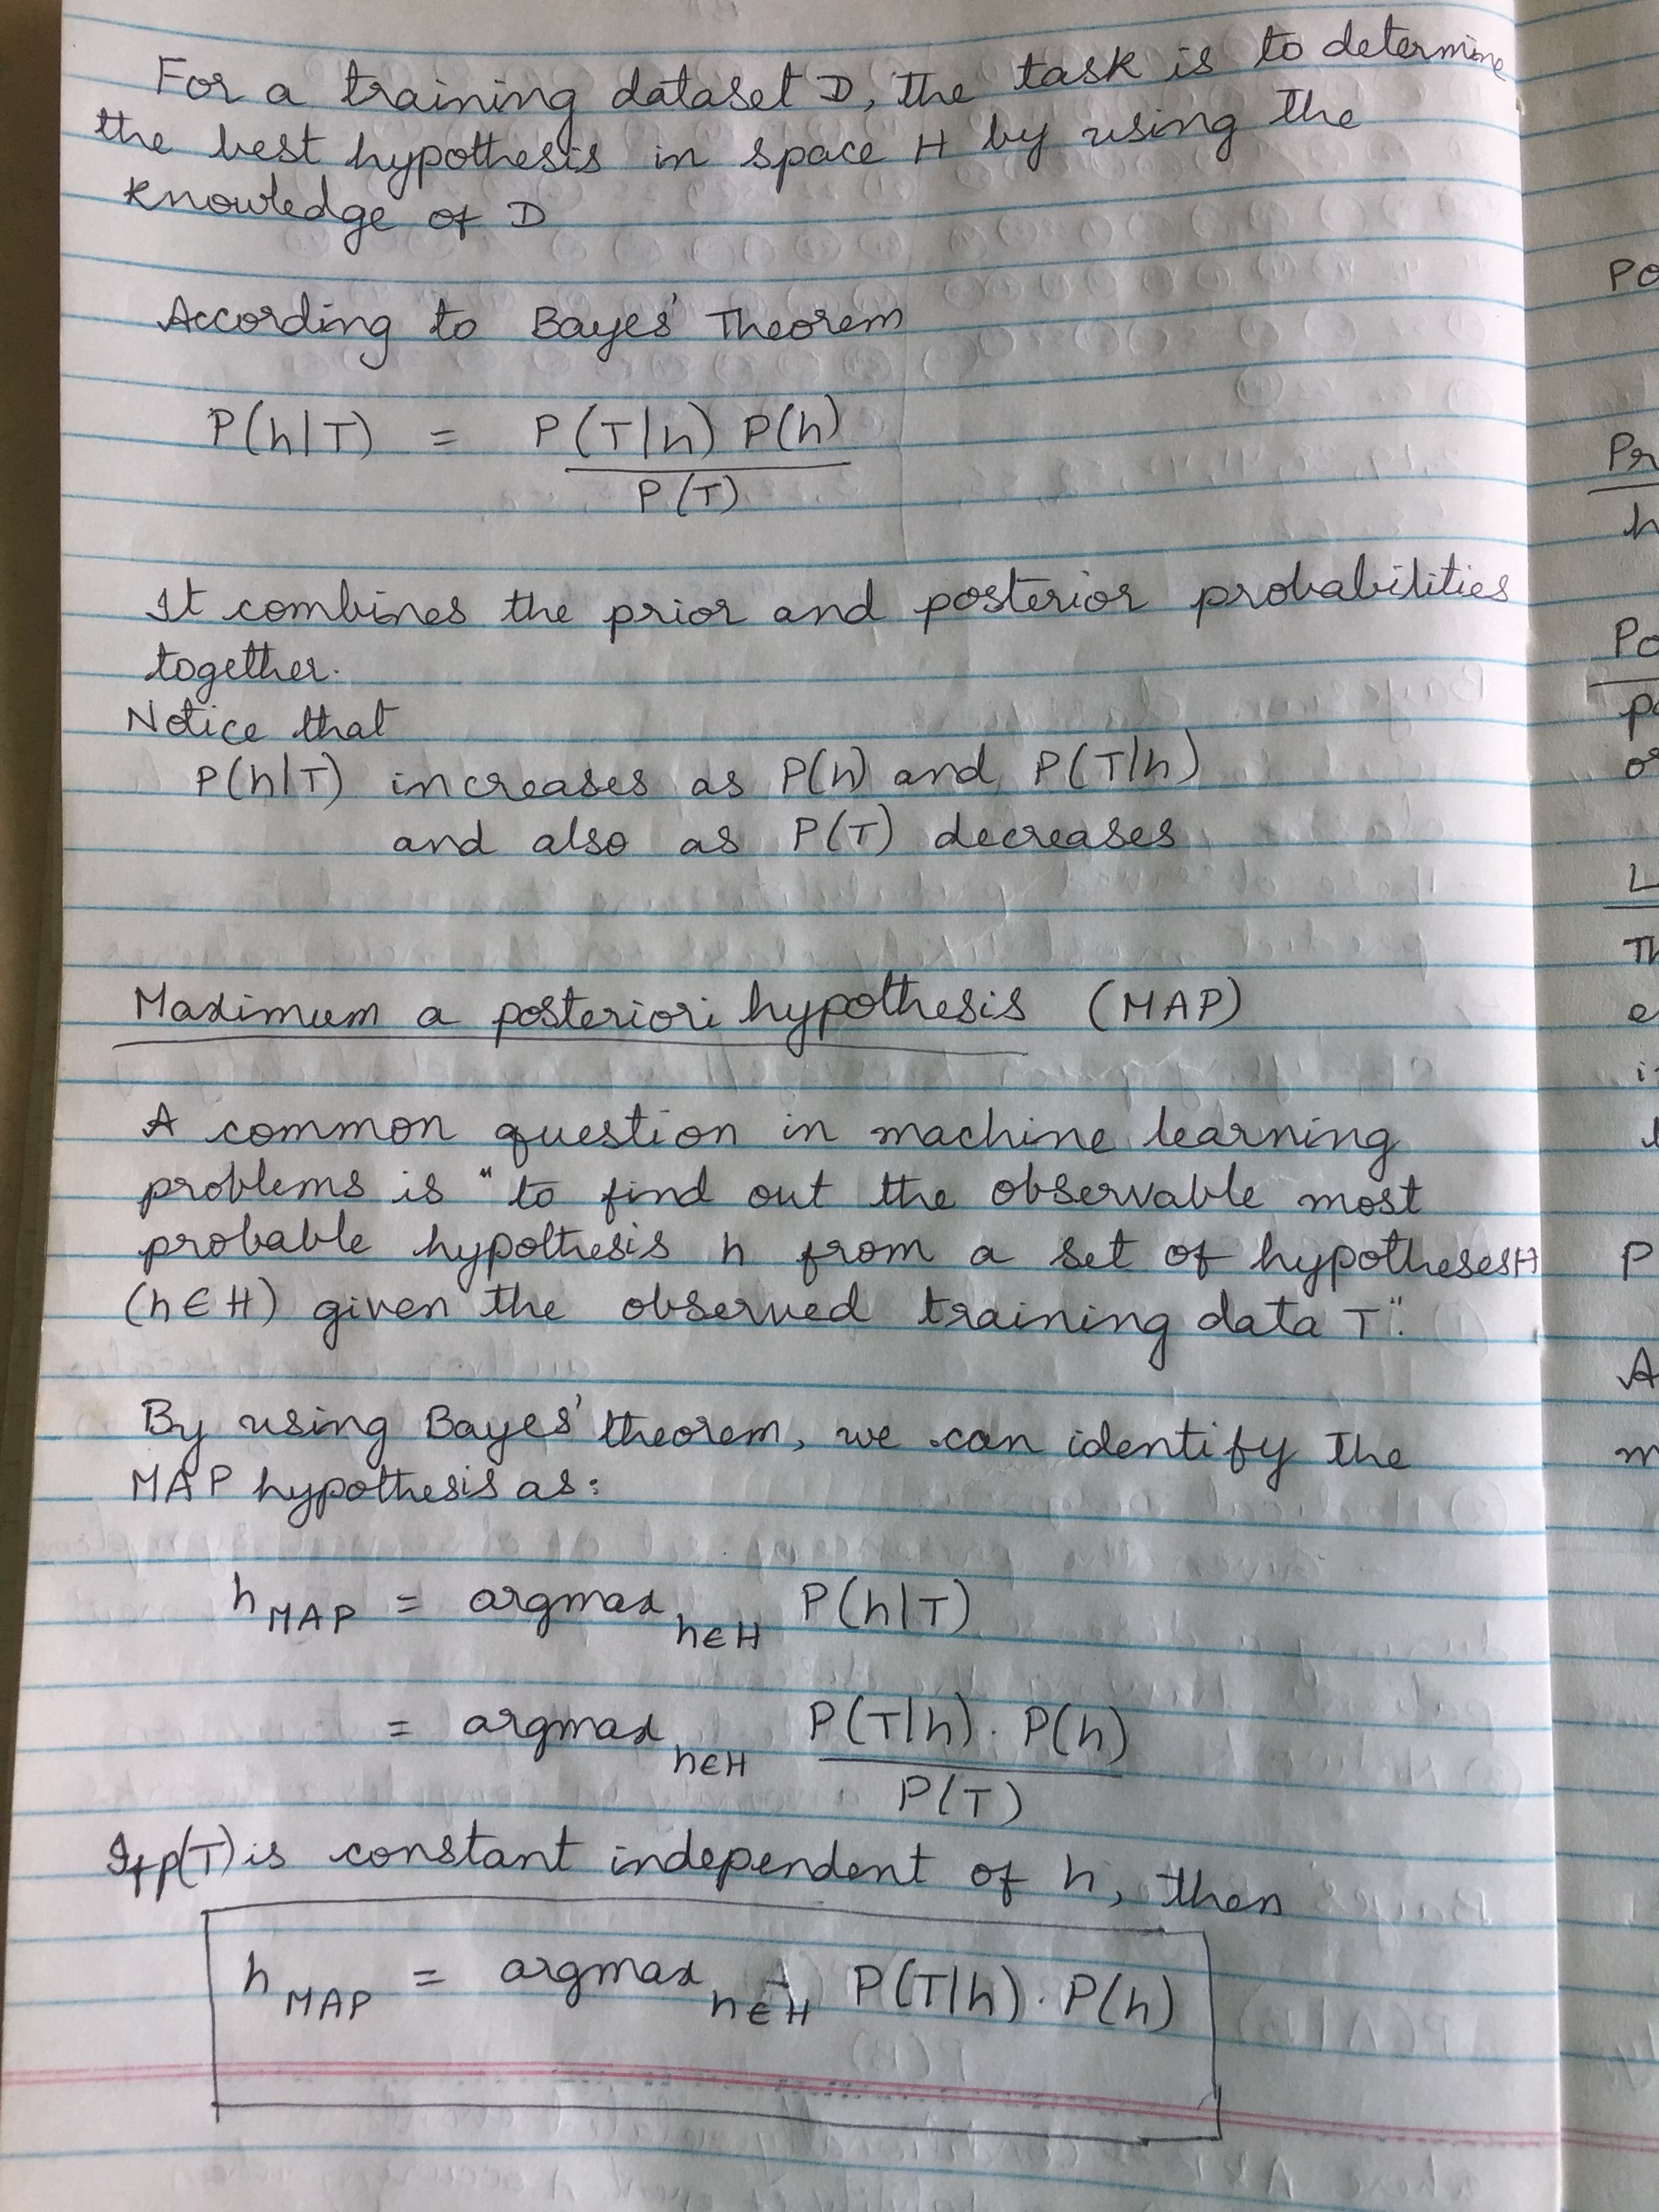 For a training dataset D, the task is to determine
the best hypothesis in space H by using the
knowledge of D
According to Bayes' Theorem
P(h|T) = P(T|h) P(h)
P(T)
It combines the prior and posterior probabilities
together.
Notice that
P(h|T) increases as P(h) and P(T|h)
and also as P(T) decreases
Maximum a posteriori hypothesis (MAP)
A common question in machine learning
problems is "to find out the observable most
probable hypothesis h from a set of hypotheses H
(h∈H) given the observed training data T".
By using Bayes' theorem, we can identify the
MAP hypothesis as:
h MAP = argmax h∈H P(h|T)
= argmax h∈H P(T|h) . P(h)
P(T)
If p(T) is constant independent of h, then
h MAP = argmax h∈H P(T|h) . P(h)
Po
Pr
h
Po
p
or
L
Th
e
i
P
A
m